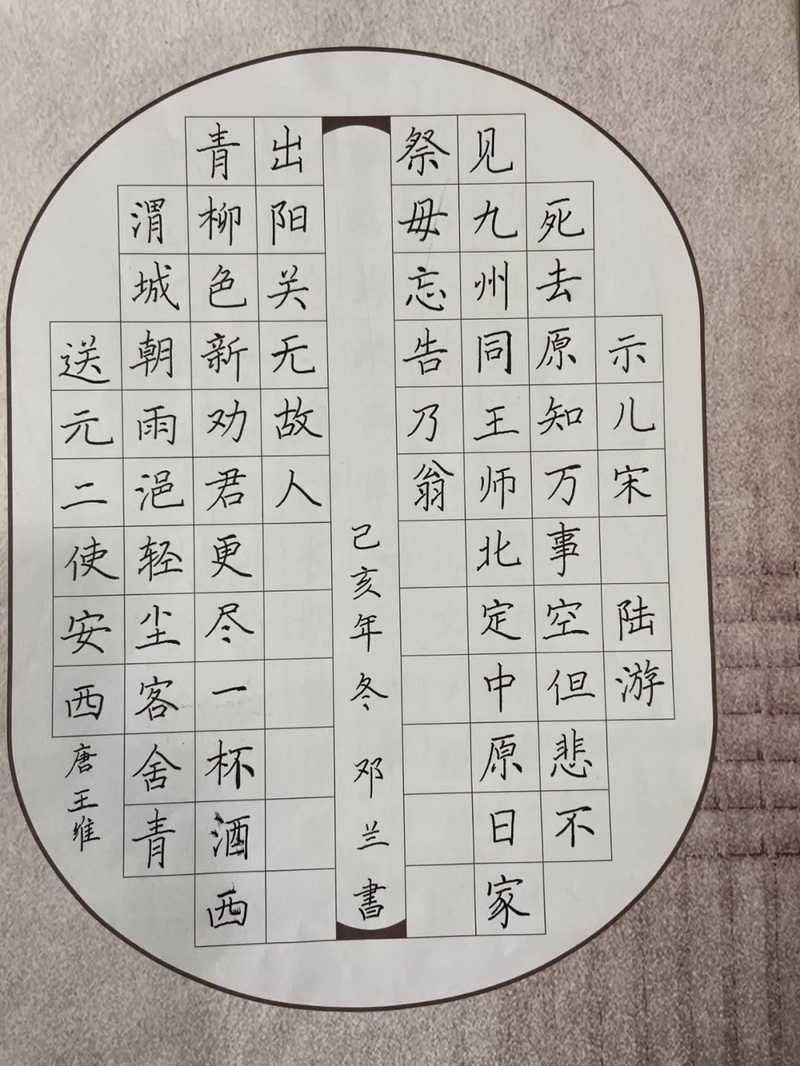 示儿宋 陆游
死去原知万事空但悲不
见九州同王师北定中原日家
祭毋忘告乃翁
送元二使安西 唐王维
渭城朝雨浥轻尘客舍青
青柳色新劝君更尽一杯酒西
出阳关无故人
己亥年冬 邓兰書